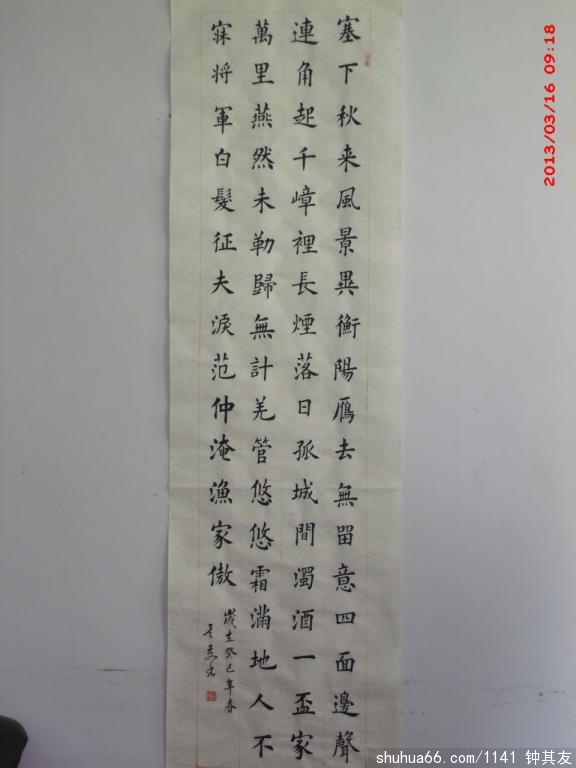 塞下秋来風景異衡陽鴈去無畱意四面邊聲
連角起千嶂裡長煙落日孤城閒濁酒一盃家
萬里燕然未勒歸無計羌管悠悠霜滿地人不
寐将軍白髮征夫淚范仲淹漁家傲
歲在癸巳年春
2013/03/16 09:18
shuhua66.com/1141 钟其友